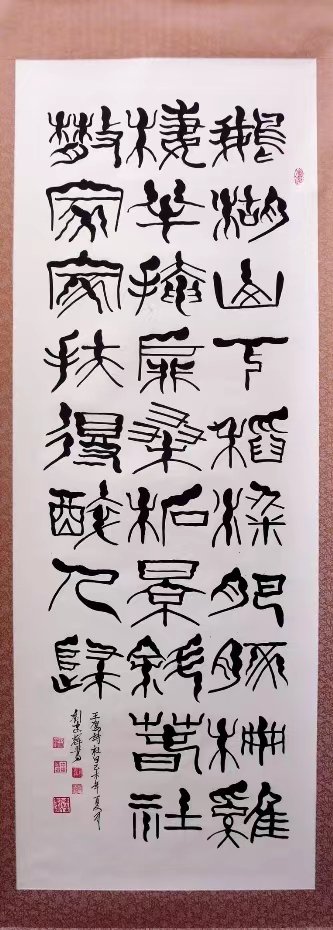 鵝湖山下稻粱肥豚柵雞
棲半掩扉桑柘景斜萅社
散家家扶得醉人歸
王駕詩社日 年夏月